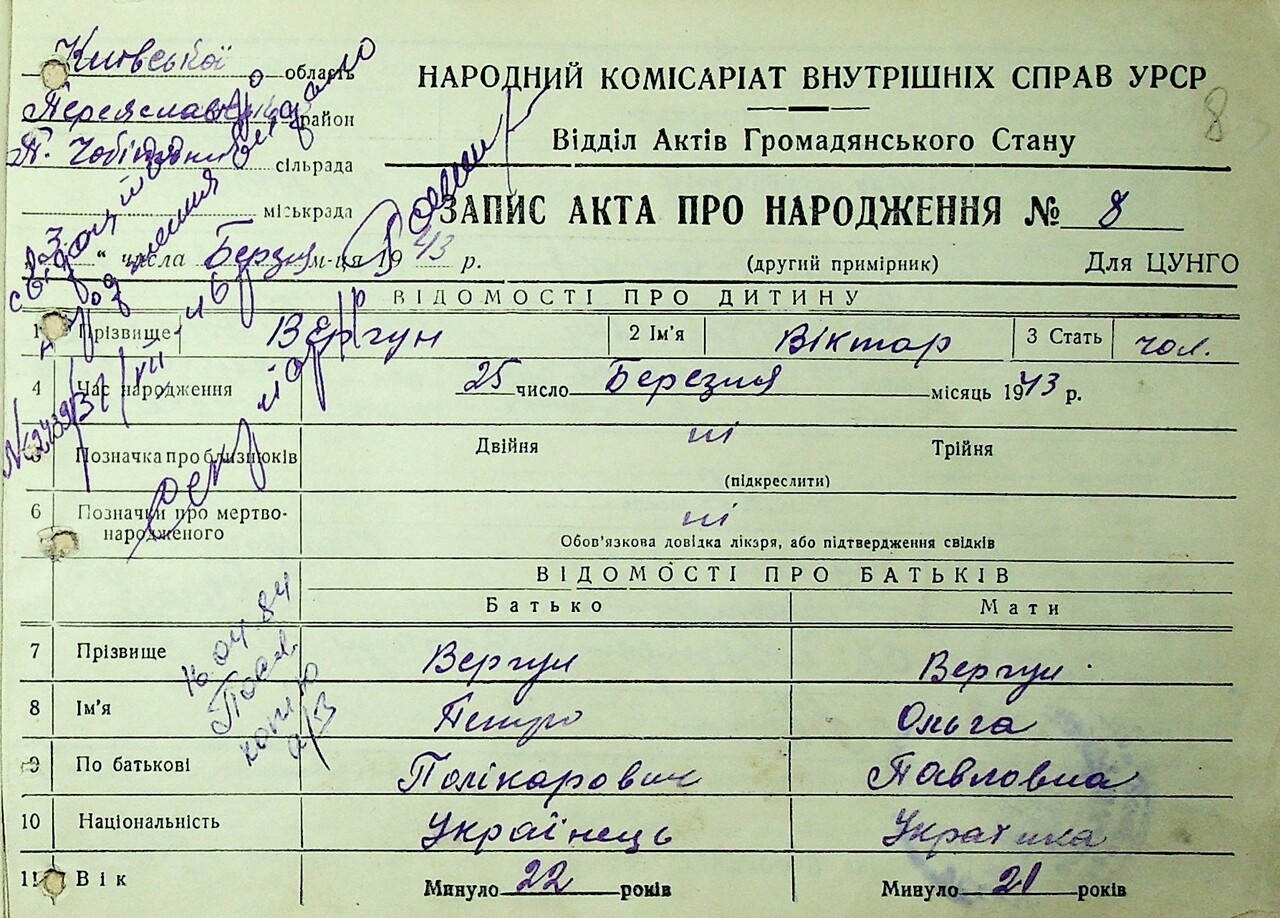 Київської область
Переяславський район
П. Чобітький сільрада
міськрада
числа Березня м-ця 1943 р.
НАРОДНИЙ КОМІСАРІАТ ВНУТРІШНІХ СПРАВ УРСР
Відділ Актів Громадянського Стану
ЗАПИС АКТА ПРО НАРОДЖЕННЯ № 8
(другий примірник) Для ЦУНГО
8
ВІДОМОСТІ ПРО ДИТИНУ
1 Прізвище Вергун 2 Ім'я Віктор 3 Стать чол.
4 Час народження 25 число Березня місяць 1943 р.
5 Позначка про близнюків Двійня ні Трійня
(підкреслити)
6 Позначки про мертво-
народженого ні
Обов'язкова довідка лікаря, або підтвердження свідків
ВІДОМОСТІ ПРО БАТЬКІВ
Батько Мати
7 Прізвище Вергун Вергун
8 Ім'я Петро Ольга
9 По батькові Полікарович Павловна
10 Національність Українець Українка
11 Вік Минуло 22 років Минуло 21 років
16.04.84
копию